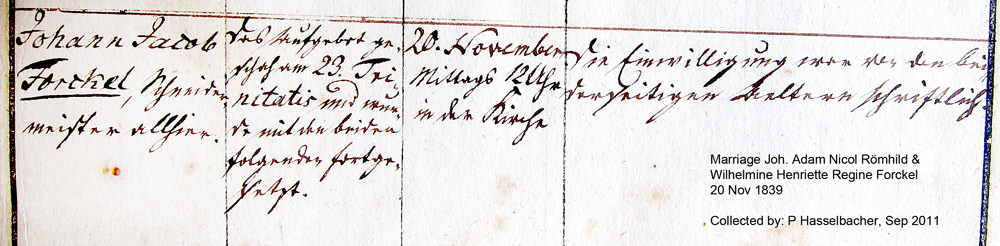 Johann Jacob
Forckel, Schneider-
meister allhier.
Das Aufgebot ge-
schah am 23. Tri-
nitatis und wur-
de mit den beiden
folgenden fortge-
setzt.
20. November
Mittags 12 Uhr
in der Kirche
Die Einwilligung war von den bei-
derseitigen Aeltern schriftlich.
Marriage Joh. Adam Nicol Römhild &
Wilhelmine Henriette Regine Forckel
20 Nov 1839
Collected by: P Hasselbacher, Sep 2011